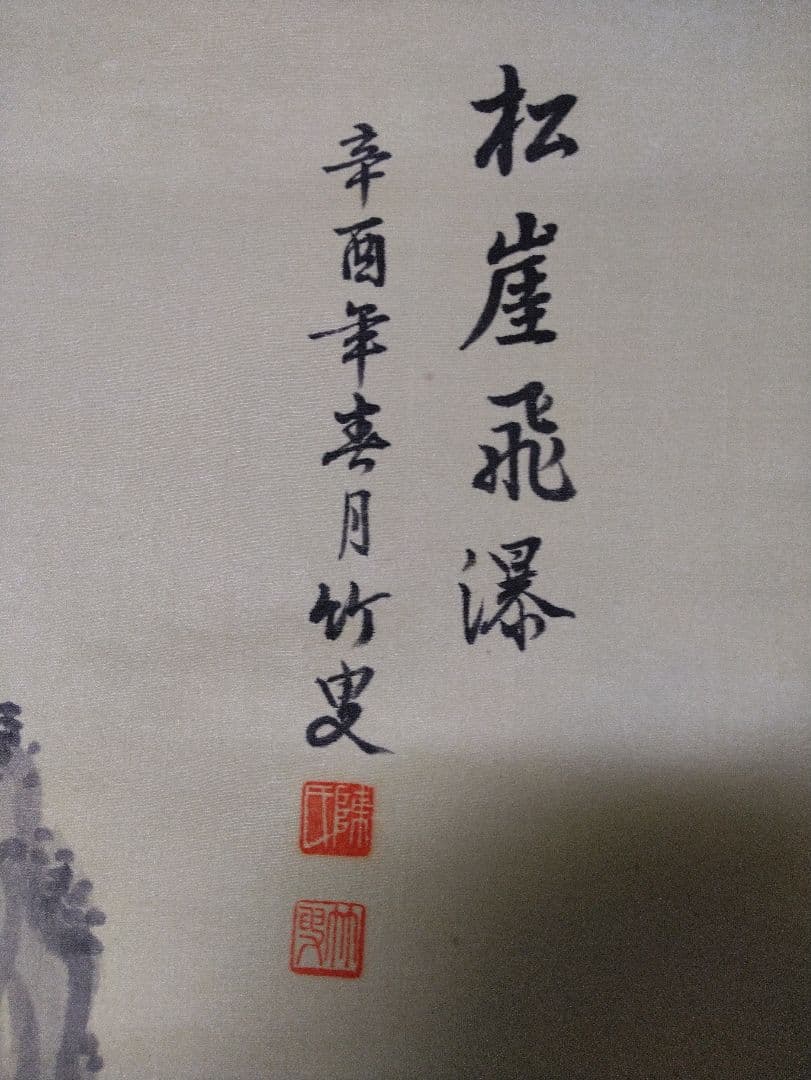 松崖飛瀑
辛酉年春月竹叟
陳氏
竹叟